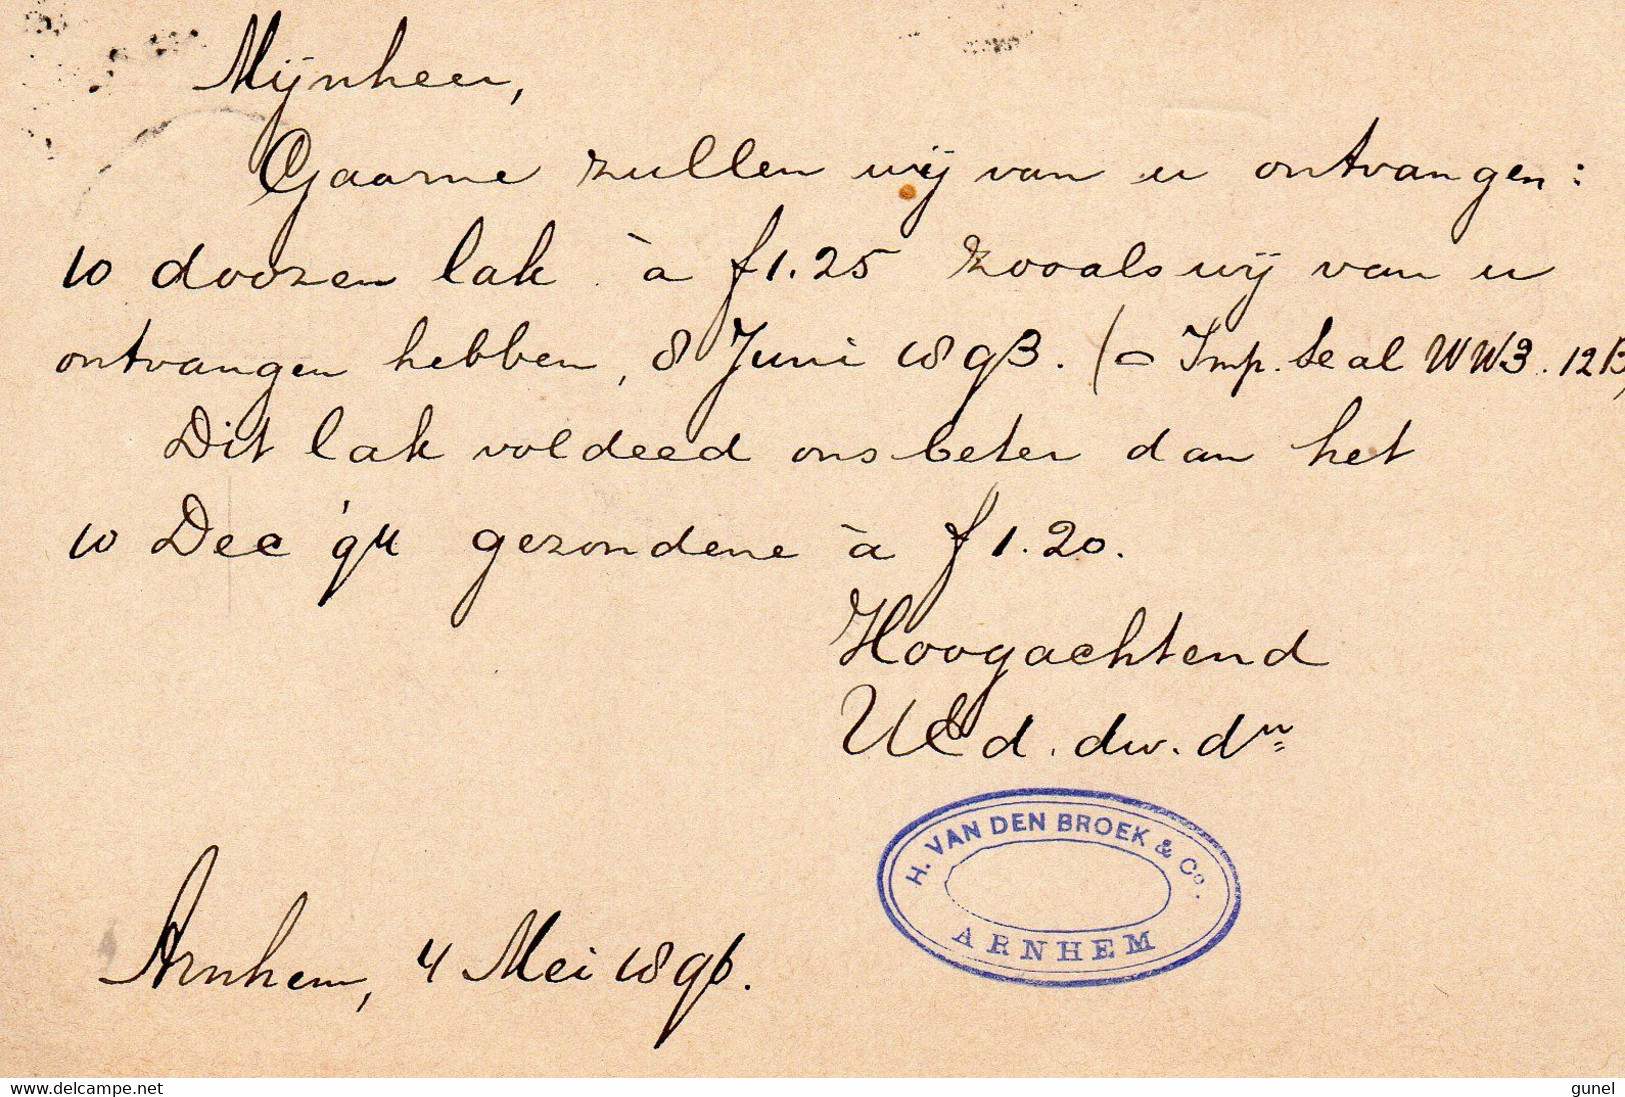 Mijnheer,
Gaarne zullen wij van u ontvangen:
10 doozen lak à f 1.25 zooals wij van u
ontvangen hebben, 8 Juni 1893. (= Imp. Seal WW3. 12B)
Dit lak voldeed ons beter dan het
10 Dec '94 gezondene à f 1.20.
Hoogachtend
UEd. dw. dn
H. VAN DEN BROEK & Co.
ARNHEM
Arnhem, 4 Mei 1896.
www.delcampe.net
gunel